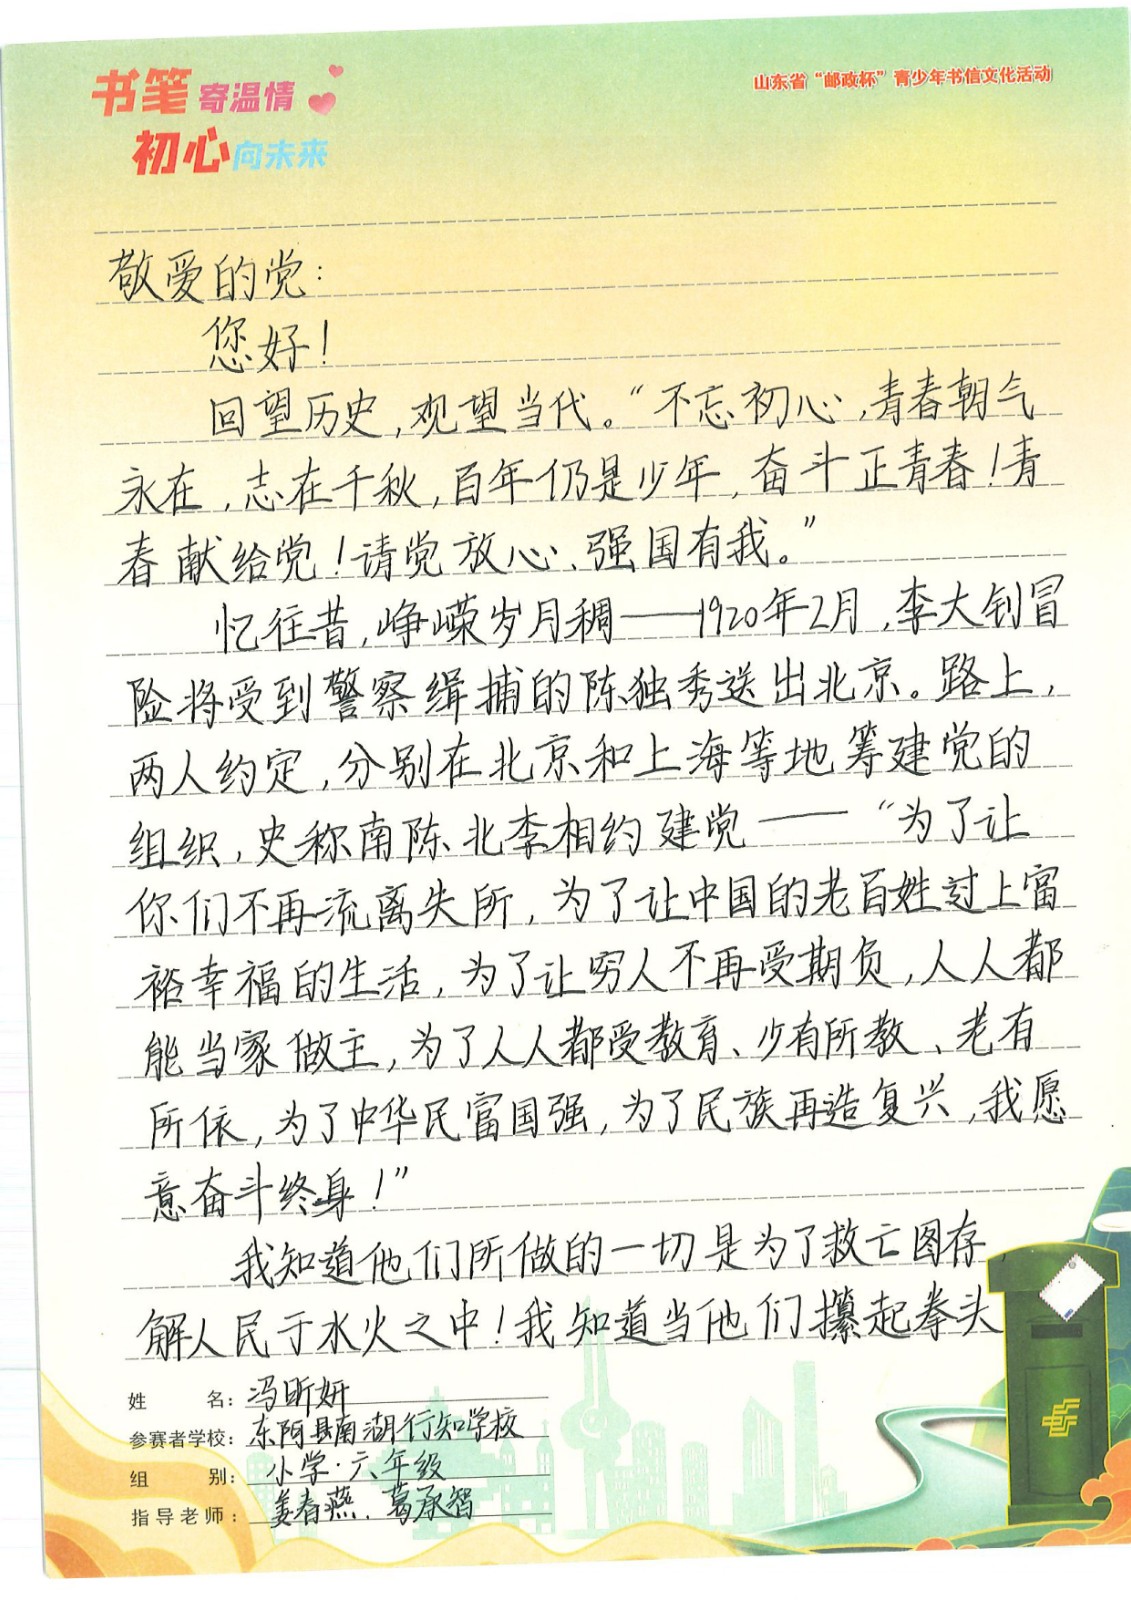 书笔寄温情
初心向未来
山东省“邮政杯”青少年书信文化活动
敬爱的党：
您好！
回望历史，观望当代。“不忘初心，青春朝气
永在，志在千秋，百年仍是少年，奋斗正青春！青
春献给党！请党放心、强国有我。”
忆往昔，峥嵘岁月稠——1920年2月，李大钊冒
险将受到警察缉捕的陈独秀送出北京。路上，
两人约定，分别在北京和上海等地筹建党的
组织，史称南陈北李相约建党——“为了让
你们不再流离失所，为了让中国的老百姓过上富
裕幸福的生活，为了让穷人不再受期负，人人都
能当家做主，为了人人都受教育、少有所教、老有
所依，为了中华民富国强，为了民族再造复兴，我愿
意奋斗终身！”
我知道他们所做的一切是为了救亡图存，
解人民于水火之中！我知道当他们攥起拳头
姓名：冯昕妍
参赛者学校：东阿县南湖行知学校
组别：小学·六年级
指导老师：姜春燕、葛承智